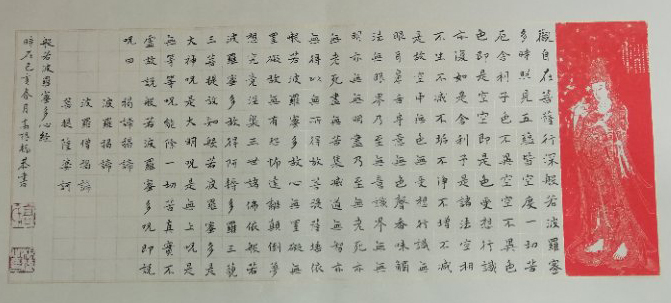 觀自在菩薩行深般若波羅蜜
多時照見五蘊皆空度一切苦
厄舍利子色不異空空不異色
色即是空空即是色受想行識
亦復如是舍利子是諸法空相
不生不滅不垢不淨不增不減
是故空中無色無受想行識無
眼耳鼻舌身意無色聲香味觸
法無眼界乃至無意識界無無
明亦無無明盡乃至無老死亦
無老死盡無苦集滅道無智亦
無得以無所得故菩提薩埵依
般若波羅蜜多故心無罣礙無
罣礙故無有恐怖遠離顛倒夢
想究竟涅槃三世諸佛依般若
波羅蜜多故得阿耨多羅三藐
三菩提故知般若波羅蜜多是
大神呪是大明呪是無上呪是
無等等呪能除一切苦真實不
虛故說般若波羅蜜多呪即說
呪曰
揭諦揭諦
波羅揭諦
波羅僧揭諦
菩提薩婆訶
般若波羅蜜多心經
時在己亥春月恭書